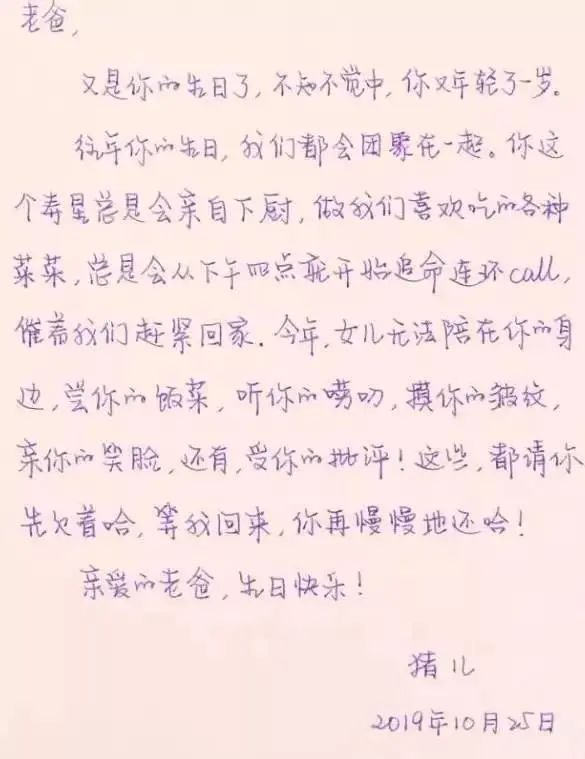 老爸,
又是你的生日了,不知不觉中,你又年轻了一岁。
往年你的生日,我们都会团聚在一起。你这
个寿星总是会亲自下厨,做我们喜欢吃的各种
菜菜,总是会从下午四点就开始追命连环call,
催着我们赶紧回家.今年,女儿无法陪在你的身
边,尝你的饭菜,听你的唠叨,摸你的皱纹,
亲你的笑脸,还有,受你的批评!这些,都请你
先欠着哈,等我回来,你再慢慢地还哈!
亲爱的老爸,生日快乐!
猪儿
2019年10月25日